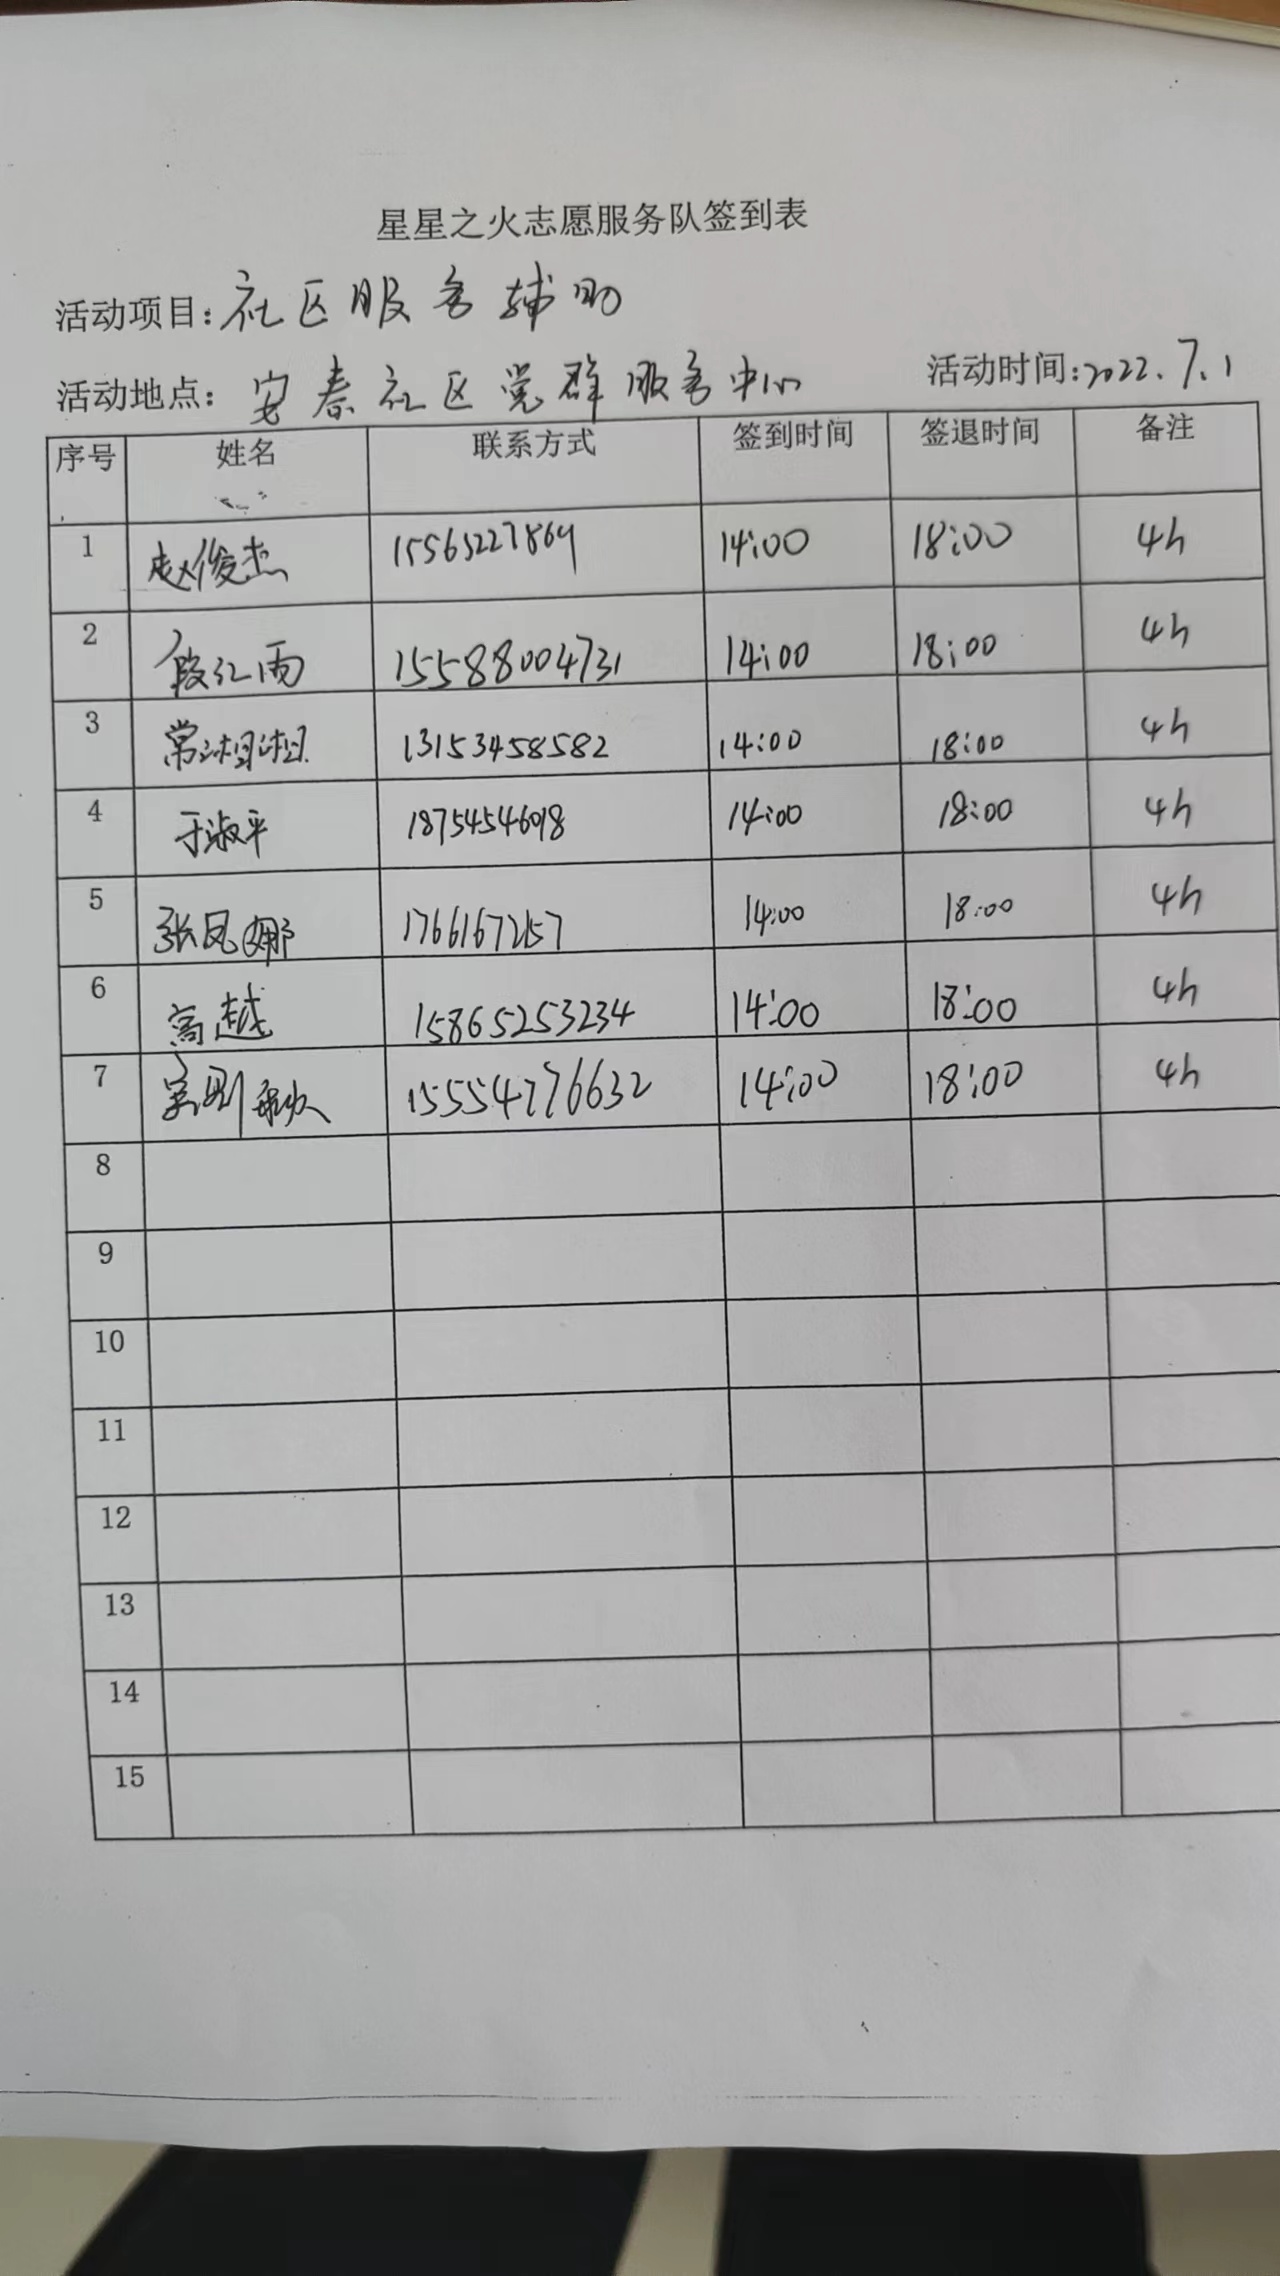 星星之火志愿服务队签到表
活动项目:社区服务辅助
活动地点:安泰社区党群服务中心 活动时间:2022.7.1
序号 姓名 联系方式 签到时间 签退时间 备注
1 赵俊杰 15563227869 14:00 18:00 4h
2 段江雨 15588004731 14:00 18:00 4h
3 常湘湘 13153458582 14:00 18:00 4h
4 于淑平 18754546018 14:00 18:00 4h
5 张凤娜 17661672157 14:00 18:00 4h
6 高越 15865253234 14:00 18:00 4h
7 15554776632 14:00 18:00 4h
8
9
10
11
12
13
14
15